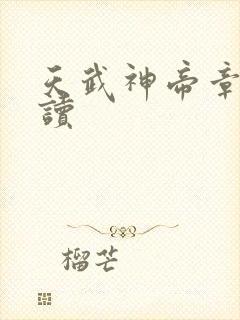 天武神帝章
讀
榴芒